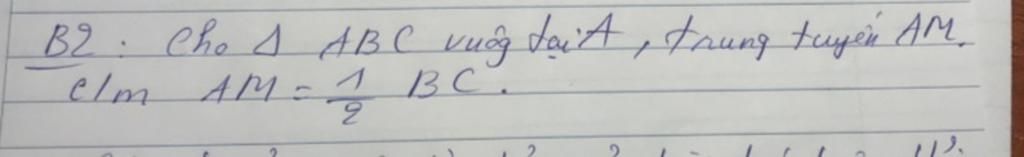 B2 : Cho Δ ABC vuôg tại A, trung tuyến AM.
c/m AM = 1/2 BC.